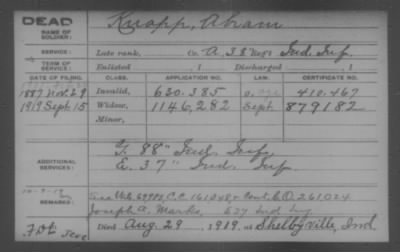 DEAD
NAME OF SOLDIER: Knapp, Aham
SERVICE: Late rank, Co. A, 38 Reg't Ind. Inf.
TERM OF SERVICE: Enlisted , 1 Discharged , 1
DATE OF FILING. CLASS. APPLICATION NO. LAW. CERTIFICATE NO.
1887 Nov. 29 Invalid, 630.385 410.467
1919 Sept. 15 Widow, 1146,282 Sept. 879182
Minor,
ADDITIONAL SERVICES: F. 88" Ind. Inf.
E. 37" Ind. Inf.
REMARKS: C.C. 161048, Cont. C.O. 261024
Joseph A. Marks, 
Died Aug 29, 1919, at Shelbyville, Ind.